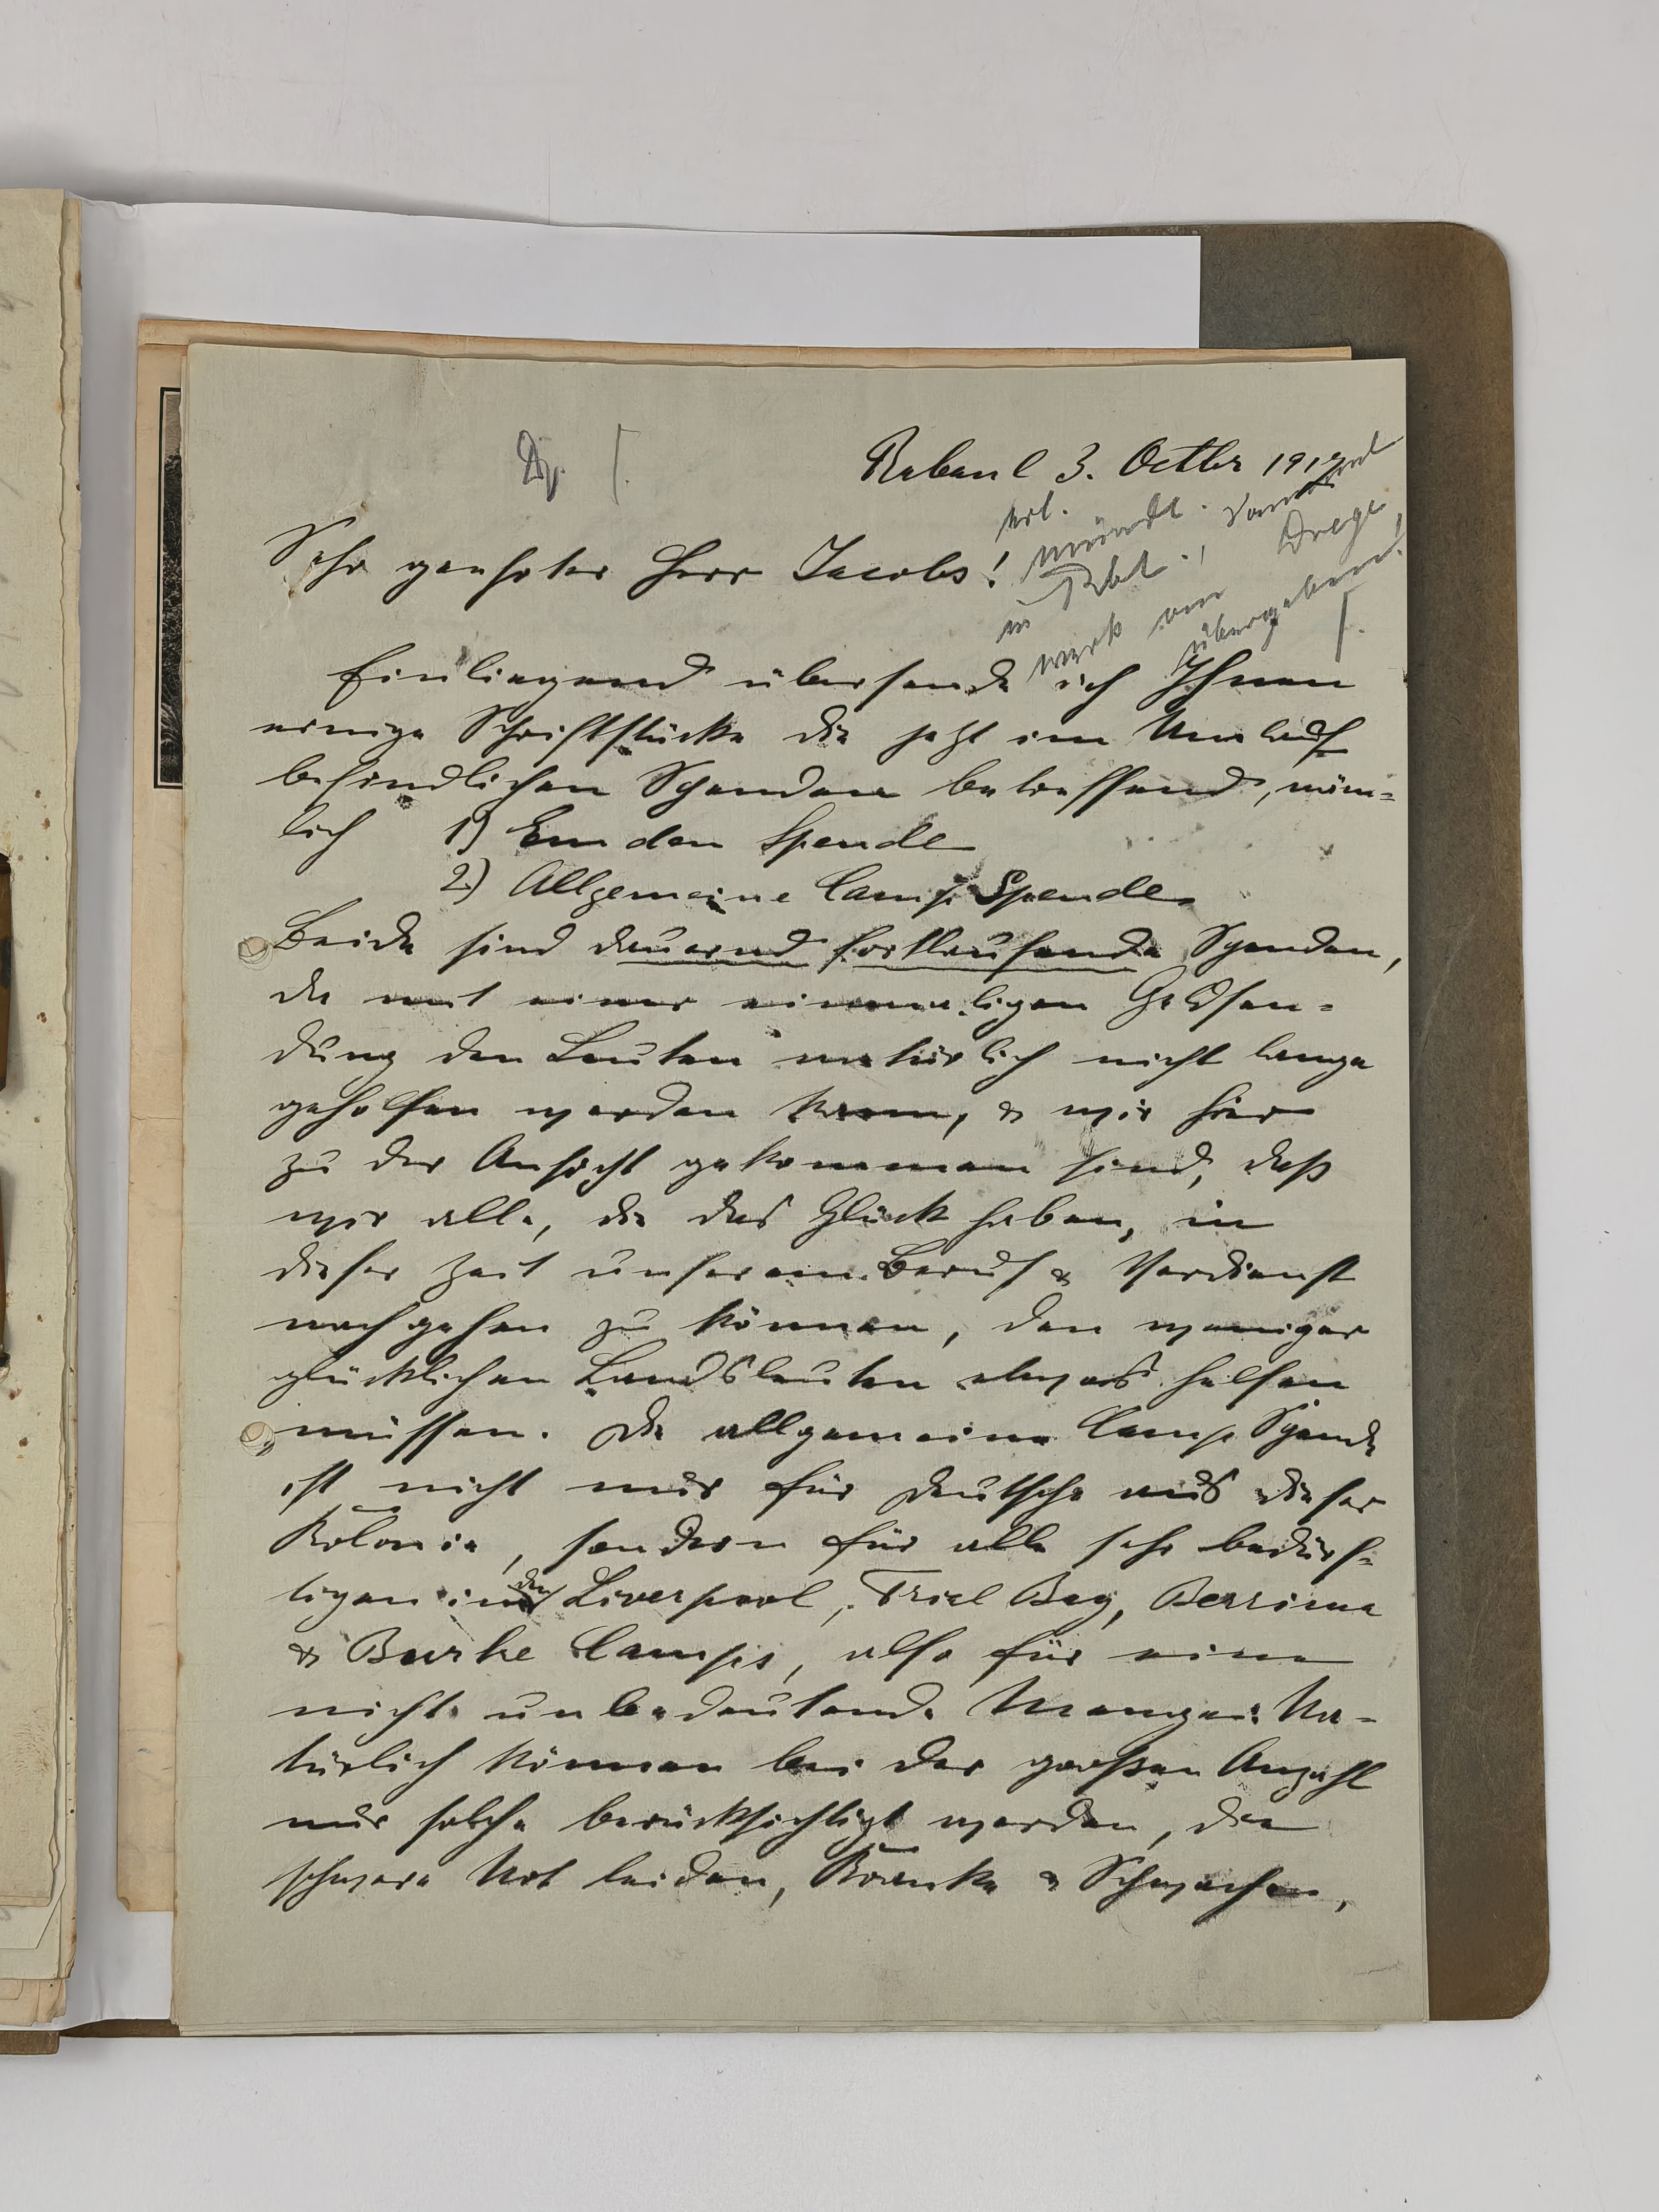 Rabaul 3. Octbr 1917
Sehr geehrter Herr Jacobs!
erl. mündl.
in Rbl.,
Drege
übergeben!
Einliegend übersende ich Ihnen
einige Schriftstücke die jetzt im Umlauf
befindlichen Spenden betreffend, näm=
lich 1) Emden Spende
2.) Allgemeine Camp Spende
Beide sind dauernd fortlaufende Spenden,
da mit einer einmaligen Geldsen=
dung den Leuten natürlich nicht lange
geholfen werden kann, & wir hier
zu der Ansicht gekommen sind, daß
wir alle, die das Glück haben, in
dieser Zeit unserem Beruf & Verdienst
nachgehen zu können, den weniger
glücklichen Landsleuten etwas helfen
müssen. Die allgemeine Camp Spende
ist nicht nur für Deutsche aus dieser
Kolonie, sondern für alle sehr bedürf=
tigen in den Liverpool, Trial Bay, Berrima
& Burke Camps, also für eine
nicht unbedeutende Menge. Na=
türlich können bei der großen Anzahl
nur solche berücksichtigt werden, die
schwere Not leiden, Kranke & Schwachen,